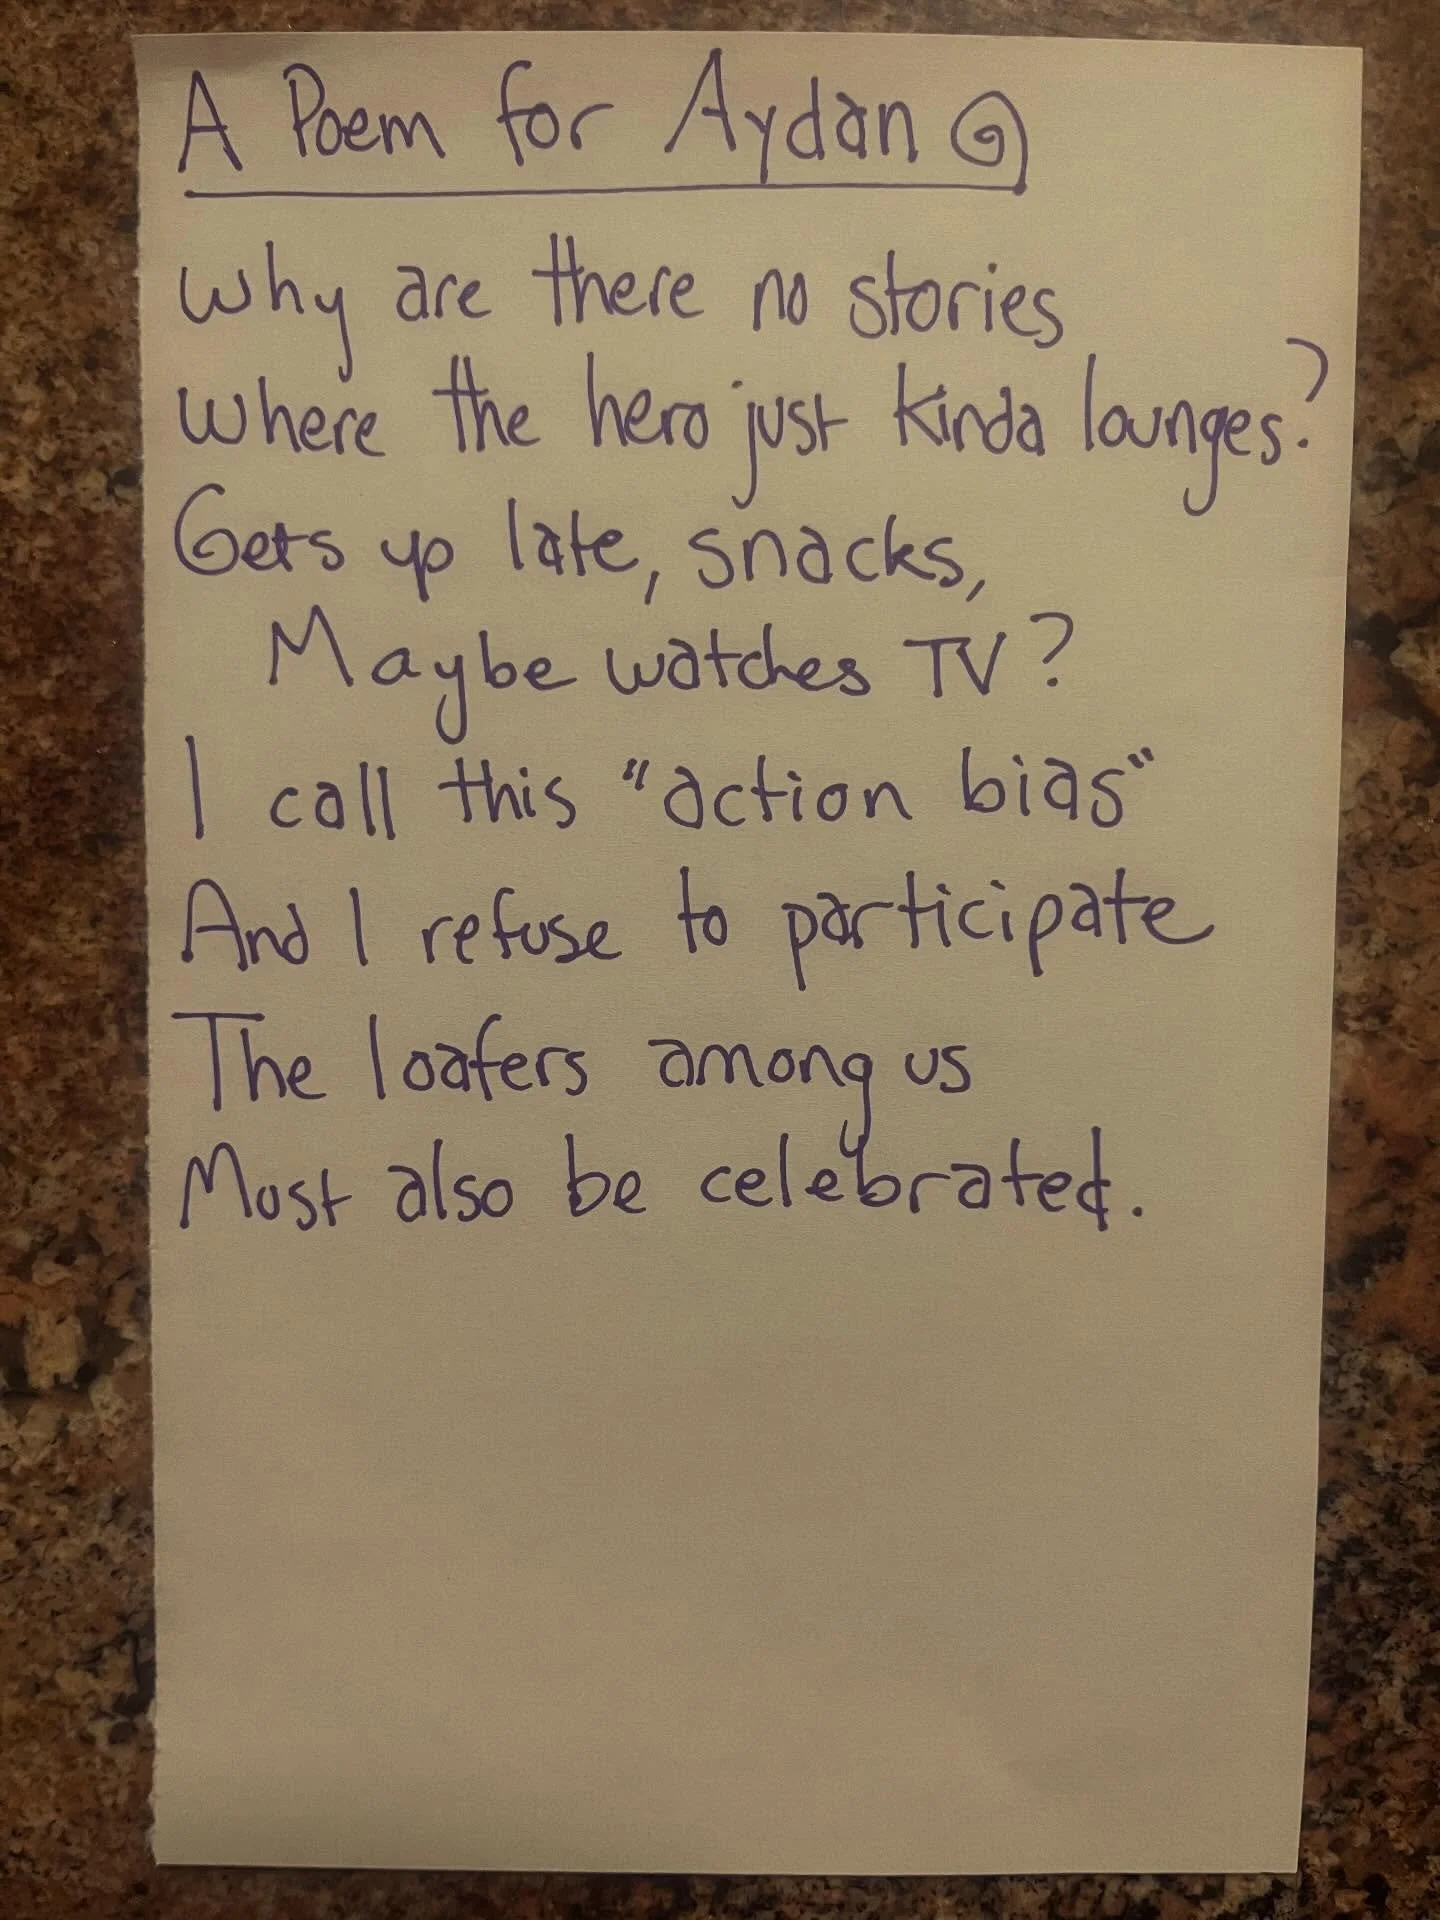 A Poem for Aydan
Why are there no stories
where the hero just kinda lounges?
Gets up late, snacks,
Maybe watches TV?
I call this "action bias"
And I refuse to participate
The loafers among us
Must also be celebrated.